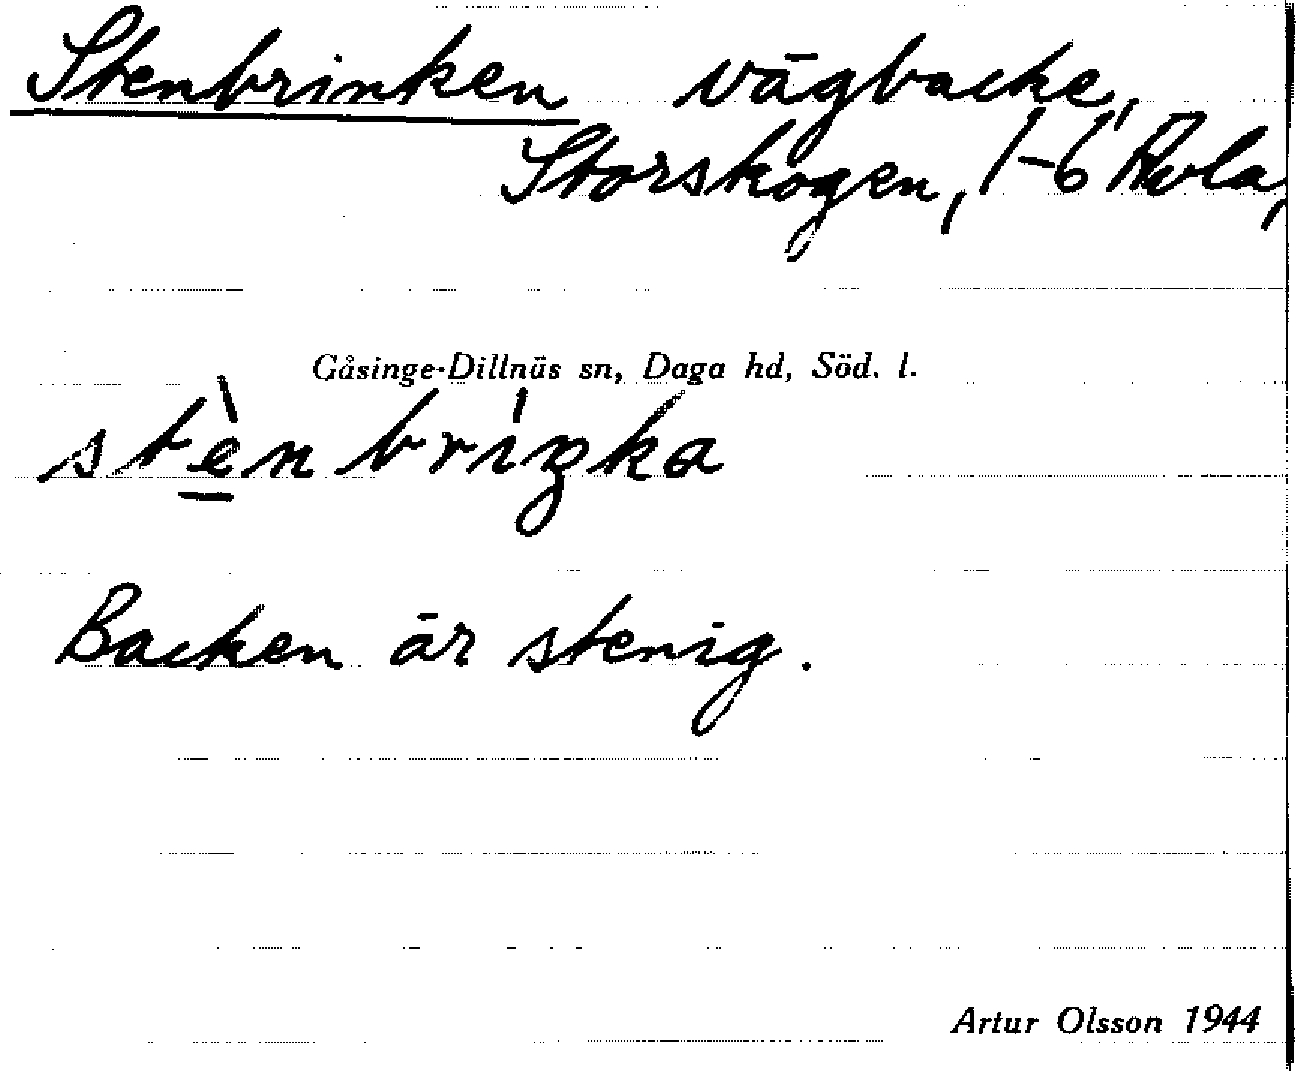 Stenbrinken vägbacke,
Storskogen, 1-6 Avla,
Gåsinge-Dillnäs sn, Daga hd, Söd. l.
stè̱nbríŋka
Backen är stenig.
Artur Olsson 1944